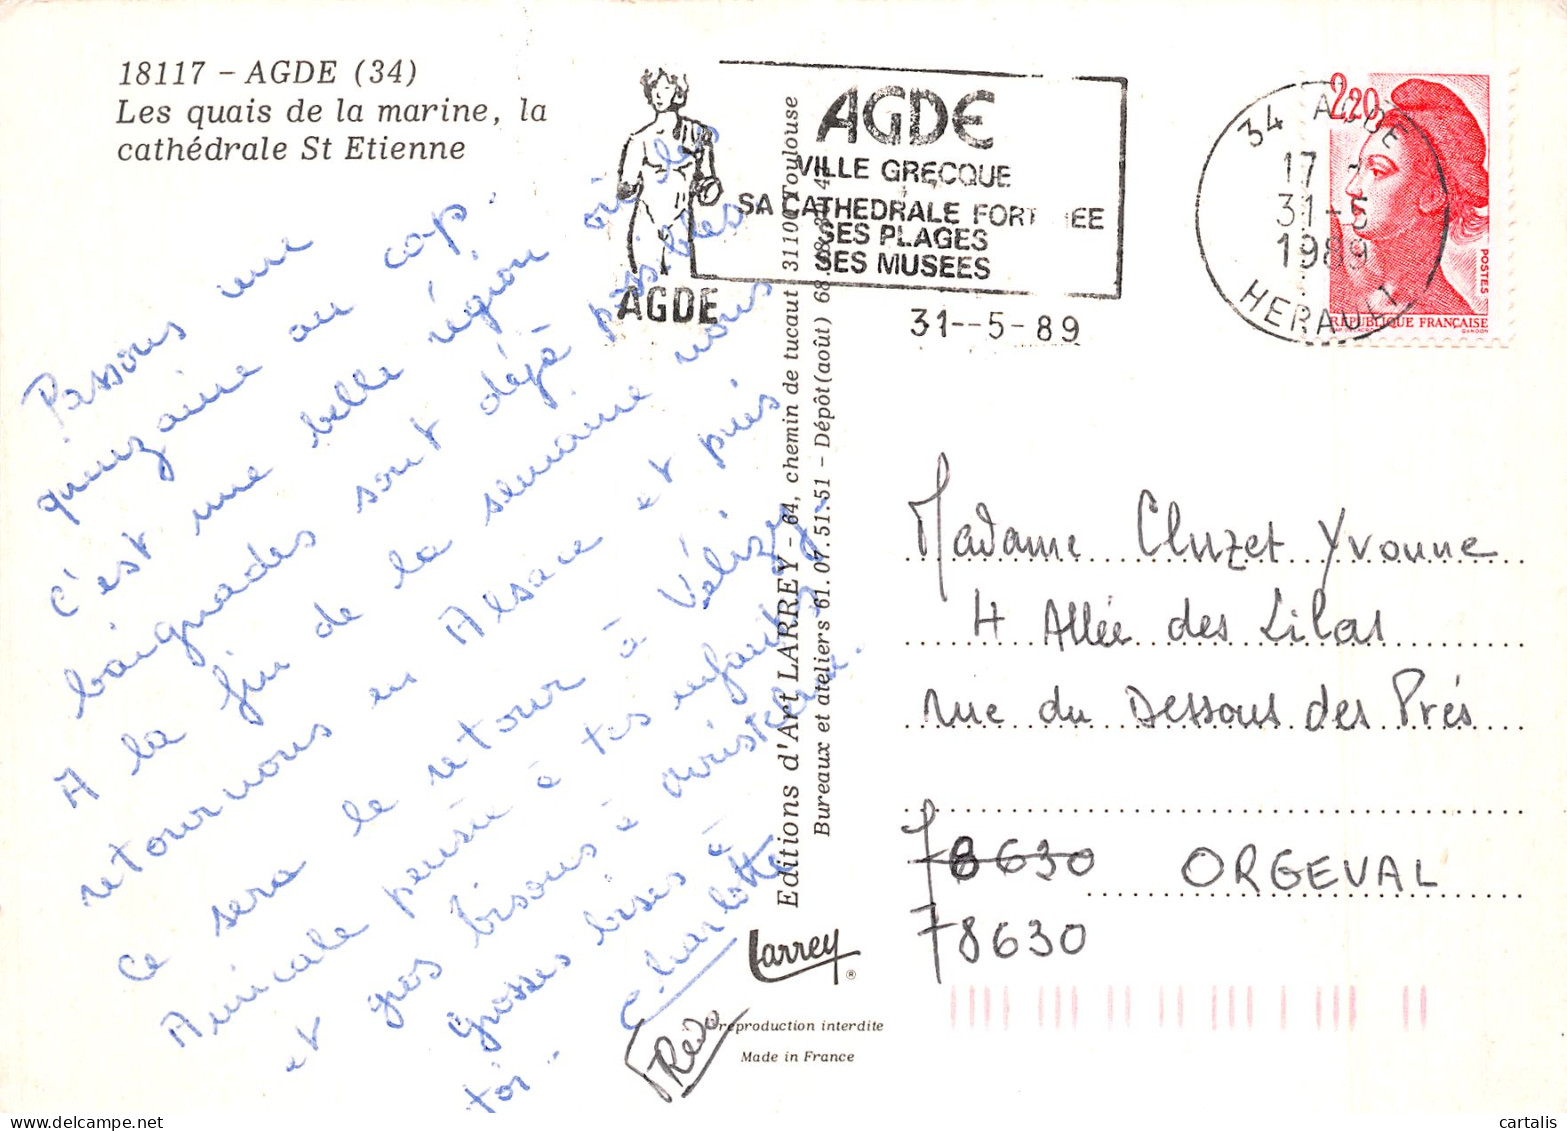 18117 - AGDE (34)
Les quais de la marine, la
cathédrale St Etienne
Passons une
quinzaine au cap.
C'est une belle région où les
baignades sont déjà possibles.
A la fin de la semaine nous
retournons en Alsace et puis
Ce sera le retour à Vélizy.
Amicale pensée à tes enfants
et gros bisous à Christelle.
Grosses bises à
toi.
Charlotte
Fredo
AGDE
AGDE
VILLE GRECQUE
SA CATHEDRALE FORT EE
SES PLAGES
SES MUSEES
31--5-89
34 AGDE
17 -
31-5
1989
HERAULT
2,20
POSTES
REPUBLIQUE FRANÇAISE
GANDON
Editions d'Art LARREY - 64, chemin de tucaut 31100 Toulouse
Bureaux et ateliers 61.07.51.51 - Dépôt(août) 68.
Larrey ®
reproduction interdite
Made in France
Madame Cluzet Yvonne
4 Allée des Lilas
rue du Dessous des Prés
78630 ORGEVAL
78630
© cartalis